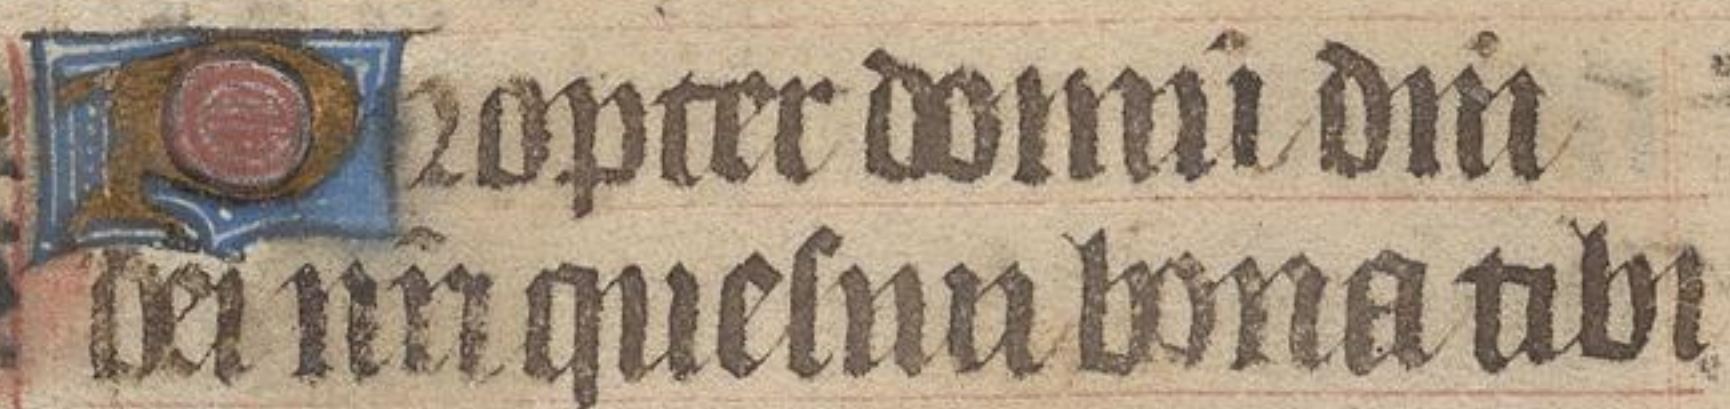 Propter domũ dñi
dei nr̃i quesiui bona tibi